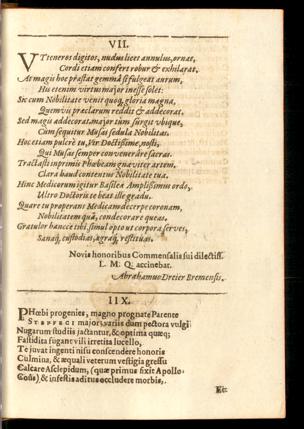 VII.
VT teneros digitos, nudus licet annulus, ornat,
Cordi etiam confert robur & exhilarat.
At magis hoc præstat gemmâ si fulgeat aurum,
Huic etenim virtus major inesse solet:
Sic cum Nobilitate venit quoq; gloria magna,
Quemvis præclarum reddit & addecorat.
Sed magis addecorat, major tum surgit ubique,
Cum sequitur Musas sedula Nobilitas.
Hoc etiam pulcrè tu, Vir Doctissime, nosti,
Qui Musas semper connenerâre sacras.
Tractasti inprimis Phœbeam gnaviter artem,
Clara haud contentus Nobilitate tua.
Hinc Medicorum igitur Basileâ Amplissimus ordo,
Ultro Doctoris te beat ille gradu.
Quare tu properans Medicam decerpe coronam,
Nobilitatem quâ, condecorare queas.
Gratulor hancce tibi, simul opto ut corpora serves,
Sanaq, custodias, ægraq, restituas.
Novis honoribus Commensalis sui dilectiss.
L. M. Q. accinebat.
Abrahamus Dreier Bremensis.
IIX.
PHœbi progenies, magno prognate Parente
majori, variis dum pectora vulgi
Nugarum studiis jactantur, & optima quæq;
Fastidita fugant vili irretita lucello,
Te juvat ingenti nisu conscendere honoris
Culmina, & æquali veterum vestigia gressu
Calcare Asclepidum, (quæ primus fixit Apollo-
Cous) & infestis aditus occludere morbis,
Et